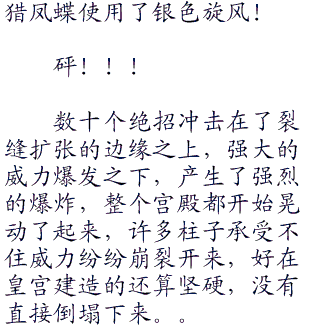 猎凤蝶使用了银色旋风！
砰！！！
数十个绝招冲击在了裂
缝扩张的边缘之上，强大的
威力爆发之下，产生了强烈
的爆炸，整个宫殿都开始晃
动了起来，许多柱子承受不
住威力纷纷崩裂开来，好在
皇宫建造的还算坚硬，没有
直接倒塌下来。。